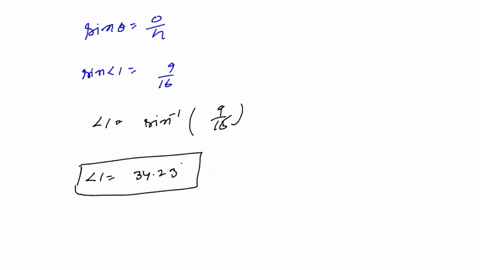 sin θ = o/h
sin∠1 = 9/16
∠1 = sin⁻¹ ( 9/16 )
∠1 = 34.23°